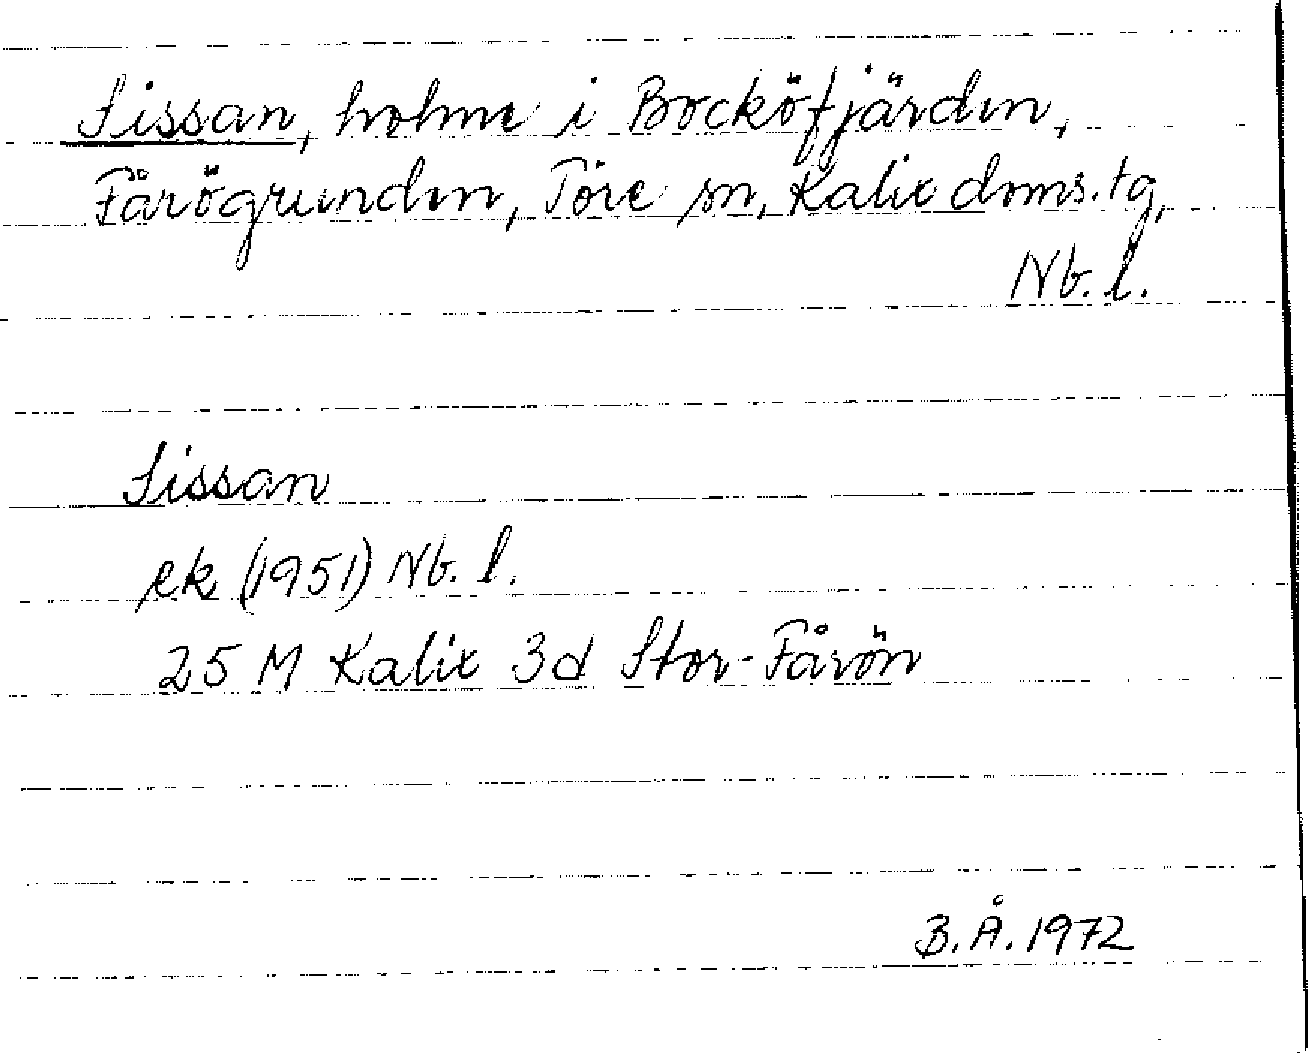 Sissan, holme i Bocköfjärden,
Fårögrunden, Töre sn, Kalix doms.tg,
Nb. l.
Sissan
ek (1951) Nb. l.
25 M Kalix 3d Stor-Fårön
B.Å. 1972